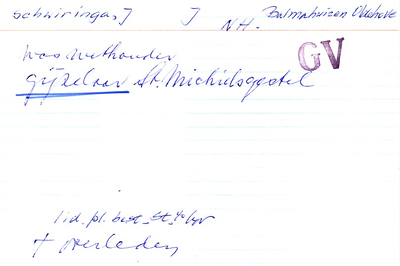 Schuiringa, J J NH. Balmahuizen Oldehove
GV
was wethouder
gijzelaar St. Michielsgestel
lid. pl. best. St.
+ overleden